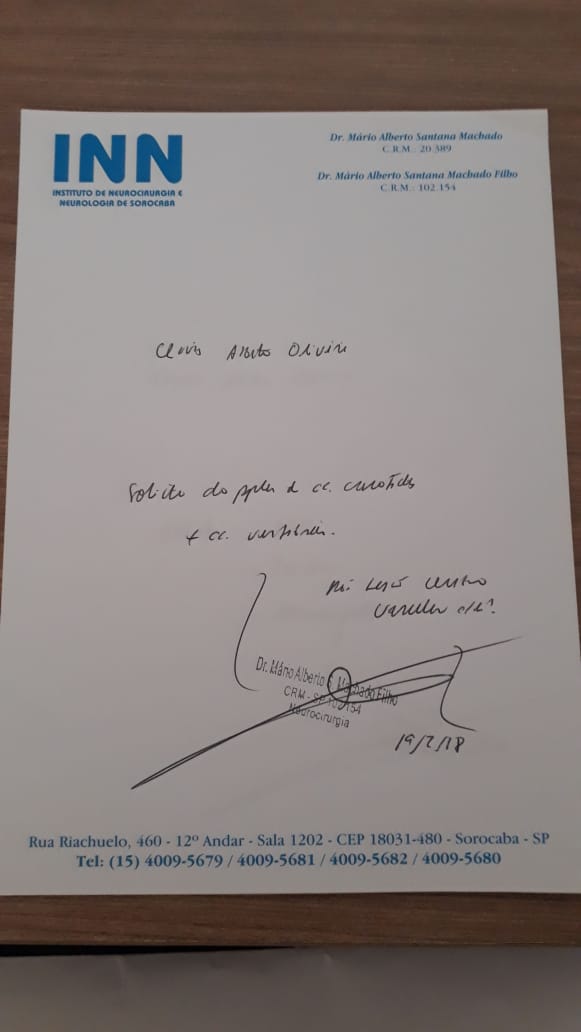 INN
INSTITUTO DE NEUROCIRURGIA E
NEUROLOGIA DE SOROCABA
Dr. Mário Alberto Santana Machado
C.R.M.: 20.389
Dr. Mário Alberto Santana Machado Filho
C.R.M.: 102.154
Alberto
Solicito doppler d aa. carotidas
+ aa. vertebrais.
Vascular
Dr. Mário Alberto S. Machado Filho
CRM - SP 102.154
Neurocirurgia
Rua Riachuelo, 460 - 12º Andar - Sala 1202 - CEP 18031-480 - Sorocaba - SP
Tel: (15) 4009-5679 / 4009-5681 / 4009-5682 / 4009-5680